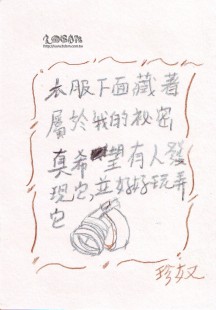 衣服下面藏著
屬於我的祕密
真希望有人發
現它,並好好玩弄
它